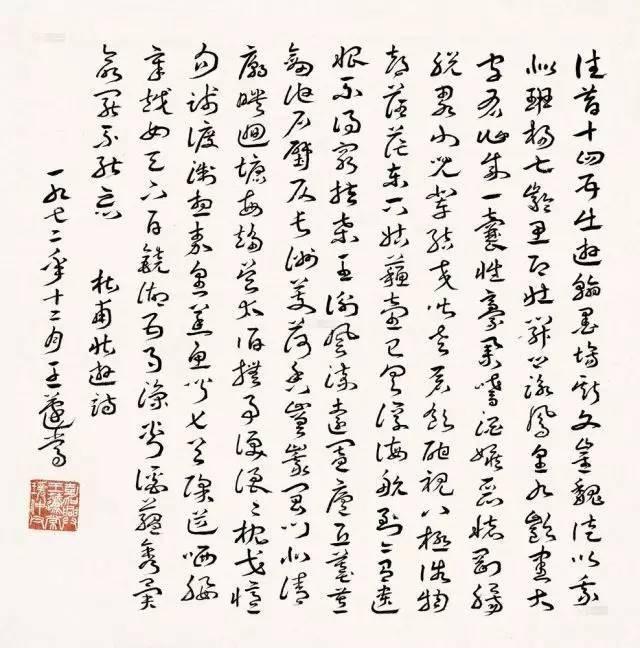 往昔十四五出遊翰墨場斯文崔魏徒以我
似班揚七齡思即壯開口詠鳳皇九齡書大
字有作成一囊性豪業嗜酒嫉惡懷剛腸
脱略小時輩結交皆老蒼飲酣視八極俗物
都茫茫東下姑蘇臺已具浮海航到今有遺
恨不得窮扶桑王謝風流遠闔廬丘墓荒
劍池石壁仄長洲芰荷香嵯峨閶門北清
廟映迴塘每趨吳太伯撫事淚浪浪枕戈憶
勾踐渡浙想秦皇蒸魚聞匕首除道哂要
章越女天下白鏡湖五月涼剡溪蘊秀異
欲罷不能忘
杜甫壯遊詩
一九七二年十二月王蘧常